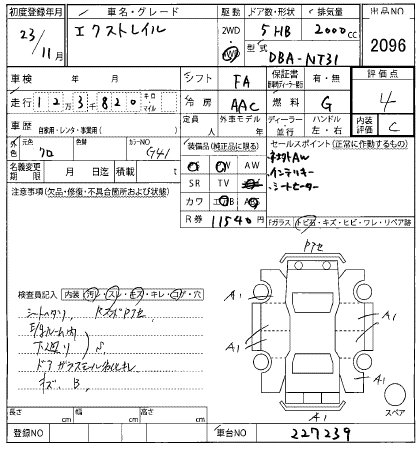 初度登録年月 車名・グレード 駆動 ドア数・形状 排気量 出品NO
23/11月 エクストレイル 2WD 4WD 5 HB 2000cc 2096
型式 DBA-NT31
車検 年 月 シフト FA 保証書 有・無 評価点
走行 12万3千820 キロ・マイル 冷房 AAC 燃料 G 4
車歴 自家用・レンタ・事業用( ) 定員 人 外車モデル 年 ディーラー 並行 ハンドル 左・右 内装評価 C
外色 元色 クロ 色替 カラーNO G41 装備品(純正品に限る) セールスポイント(正常に作動するもの)
名義変更期限 月 日迄 積載 t
PS PW AW
SR TV
カワ エアB
R券 11540円
インテリキー
シートヒーター
注意事項(欠品・修復・不具合箇所および状態)
Fガラス トビ石・キズ・ヒビ・ワレ・リペア跡
検査員記入 内装 汚レ・スレ・モス・キレ・コゲ・穴
P7セ
シートヘタリ
下廻り S
キズ B
A1
A1
A1
A1
A1
スペア
長さ cm 幅 cm 高さ cm
登録NO 車台NO 227239